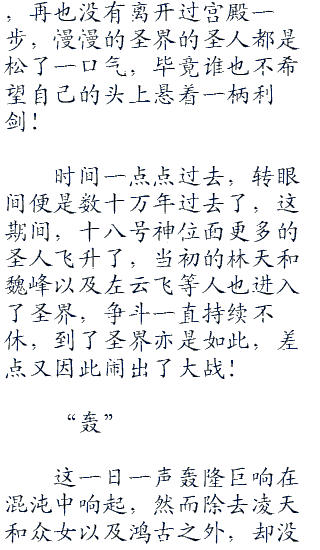 ，再也没有离开过宫殿一
步，慢慢的圣界的圣人都是
松了一口气，毕竟谁也不希
望自己的头上悬着一柄利
剑！
时间一点点过去，转眼
间便是数十万年过去了，这
期间，十八号神位面更多的
圣人飞升了，当初的林天和
魏峰以及左云飞等人也进入
了圣界，争斗一直持续不
休，到了圣界亦是如此，差
点又因此闹出了大战！
“轰”
这一日一声轰隆巨响在
混沌中响起，然而除去凌天
和众女以及鸿古之外，却没